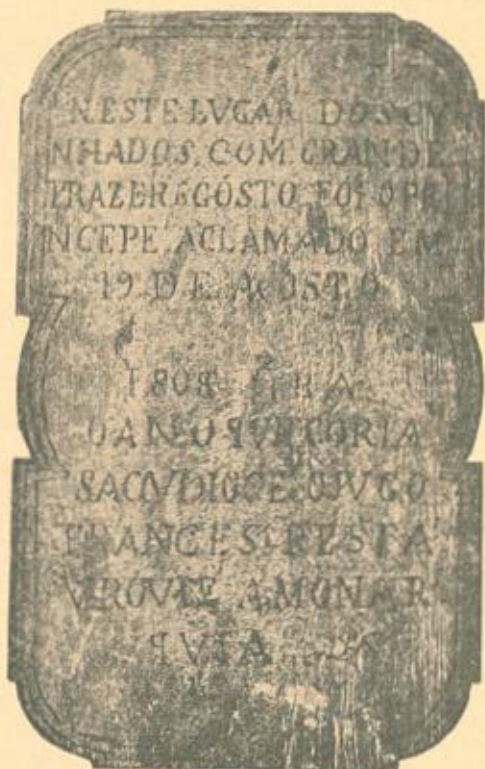 NESTE LVGAR DOS CV
NHADOS, COM GRANDE
PRAZER E GÓSTO, FOI O PR
INCEPE, ACLAMADO EM
19 D.E. AGOSTO
1808 ERA
O ANO QVE CORIA
SACVDIOCE. O JVGO
FRANCES. RESTA
VROVCE A MONAR
QVIA